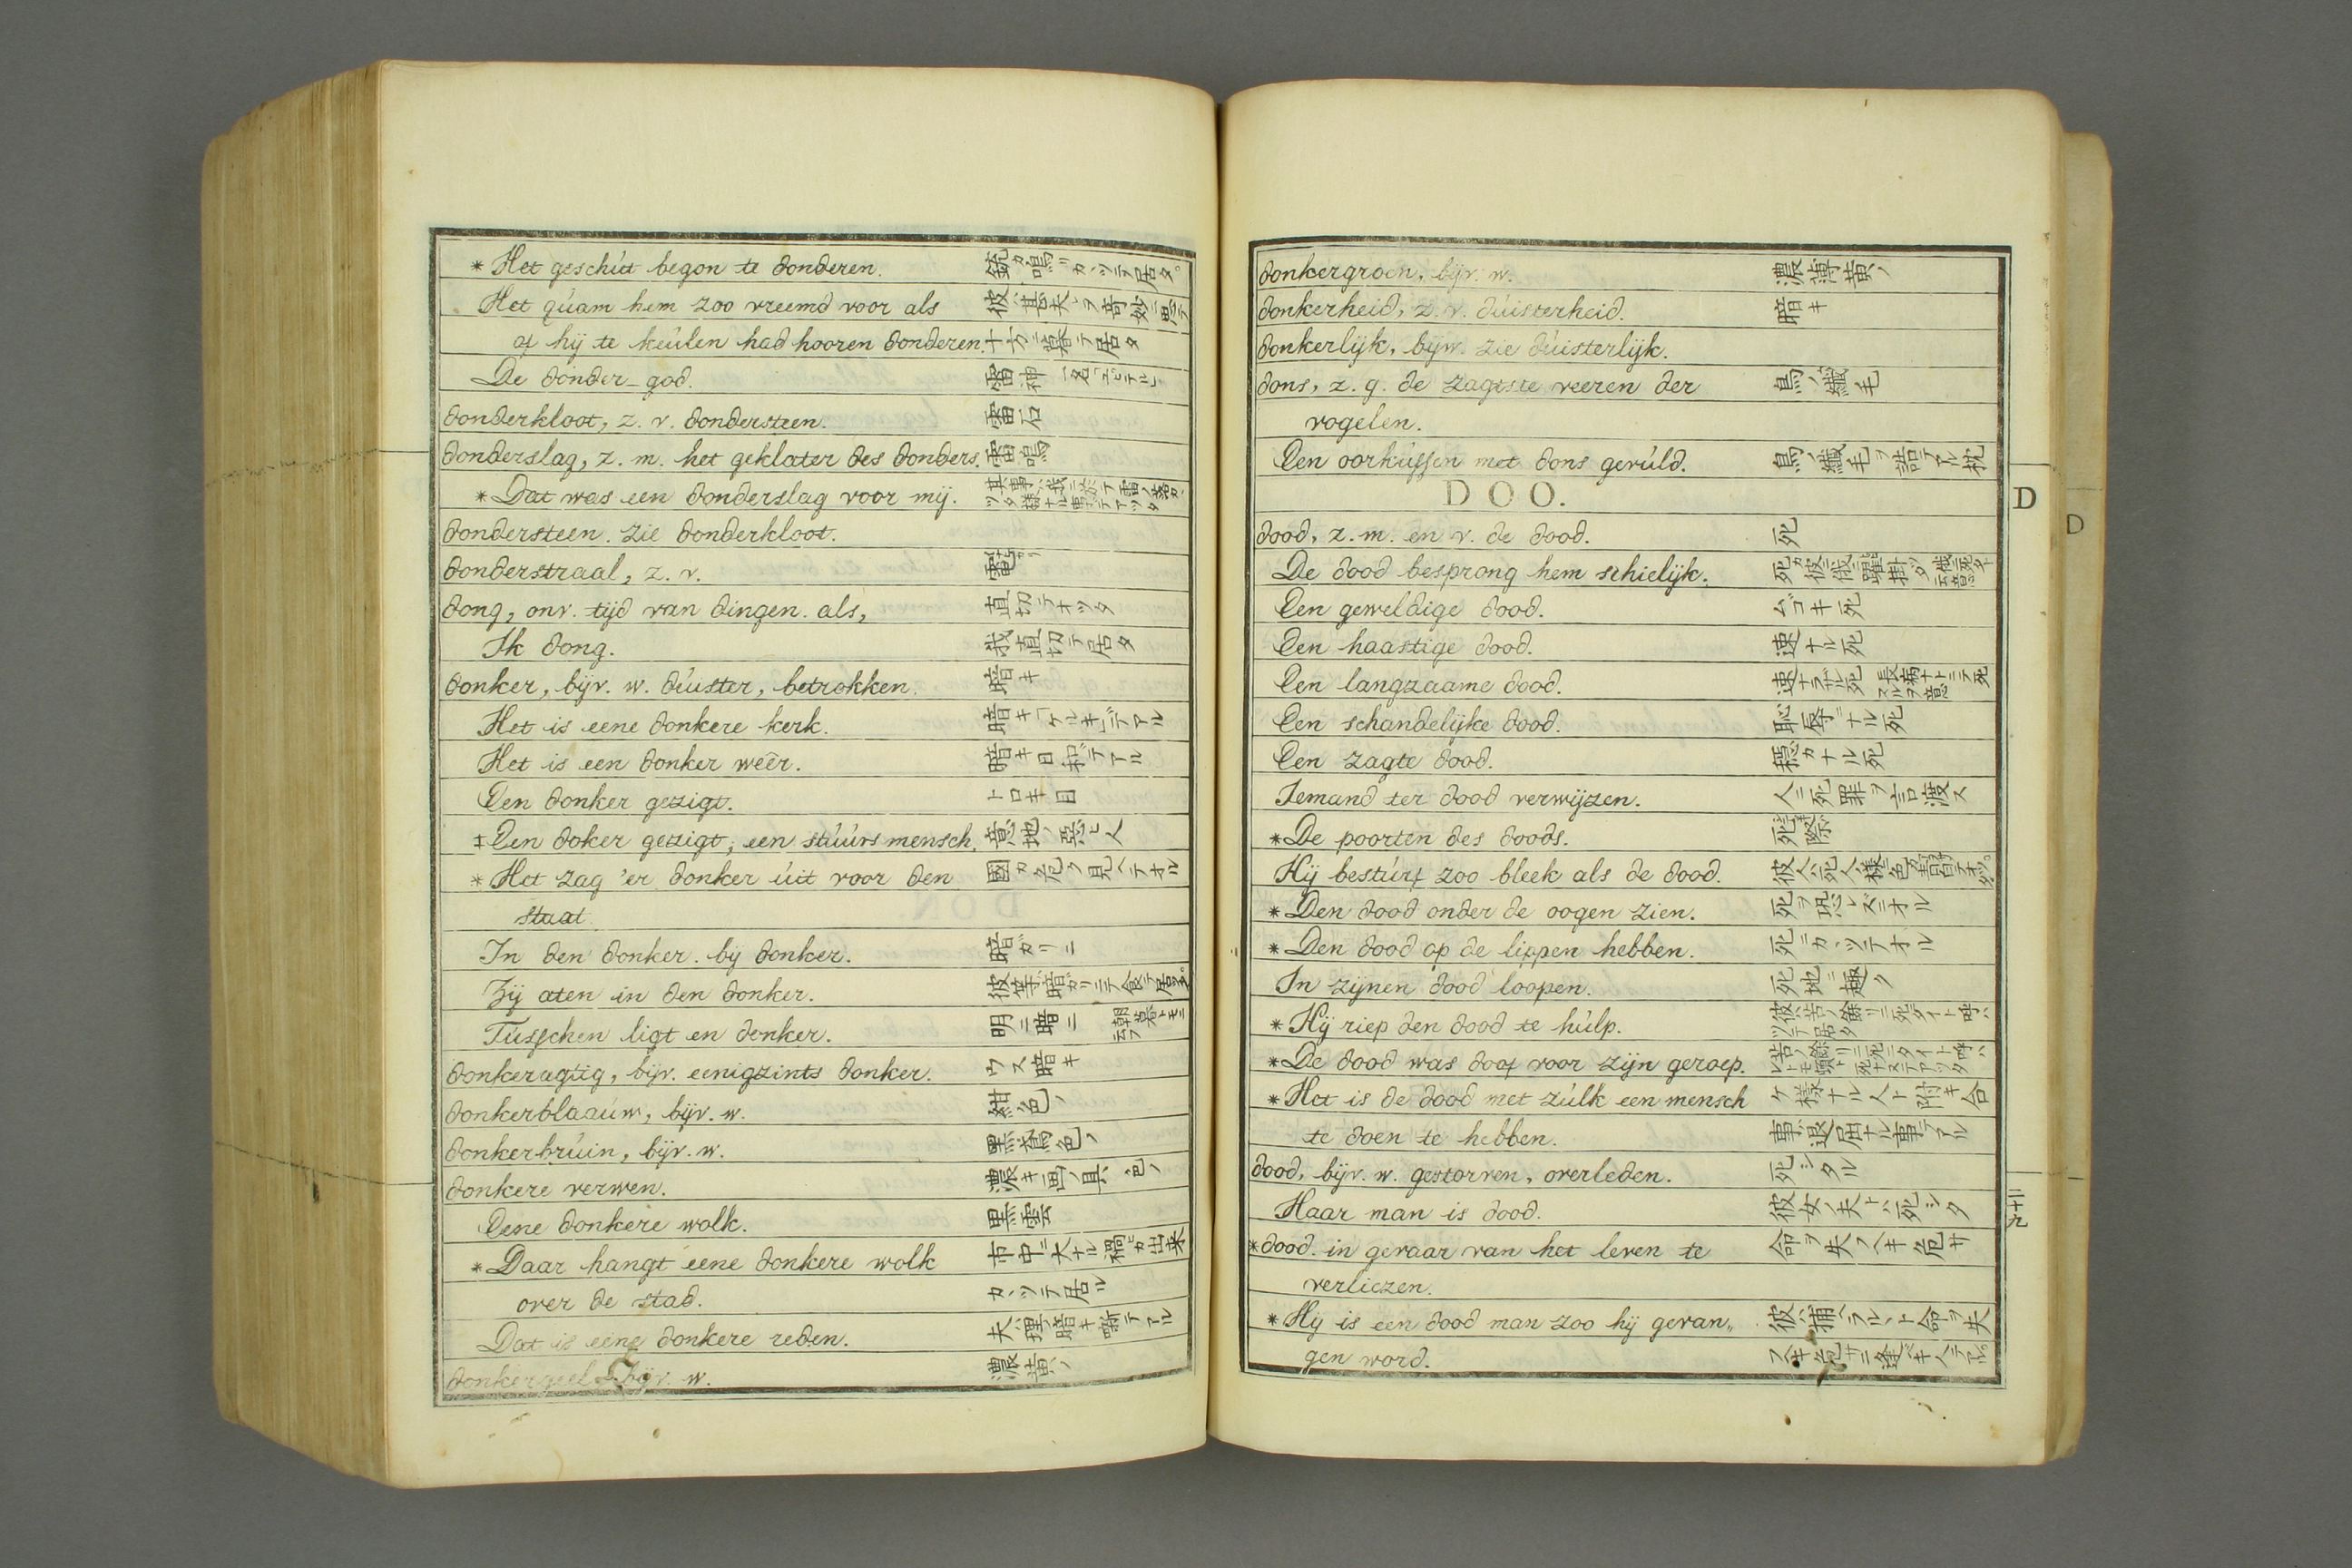 * Het geschút begon te donderen. 銃ガ鳴リカヽツテ居タ。
Het qúam hem zoo vreemd voor als 彼ハ甚夫レヲ奇妙ニ思テ
of hij te keúlen had hooren donderen. 十方ニ暮テ居タ
De donder-god. 雷神
donderkloot, z. v. dondersteen. 雷石
donderslag, z. m. het geklater des donders. 雷鳴
* Dat was een donderslag voor mij. 其事ハ我ニ於テ雷ノ落カヽ
ツタ様ナル事デアツタ
dondersteen. zie donderkloot.
donderstraal, z. v. 電
dong, onv. tijd van dingen. als, 直切テオツタ
Ik dong. 我直切テ居タ
donker, bijv. w. dúister, betrokken. 暗キ
Het is eene donkere kerk. 暗キ「ケルキ」デアル
Het is een donker weêr. 暗キ日和デアル
Een donker gezigt. トロキ目
‡ Een doker gezigt, een stúúrs mensch. 意地ノ悪ヒ人
* Het zag 'er donker úit voor den 國ガ危フ見ヘテオル
staat.
In den donker. bij donker. 暗ガリニ
Zij aten in den donker. 彼等ガ暗ガリニテ食テ居タ。
Tússchen ligt en donker. 明ニ暗ニ 朝暮トモニ云フ
donkeragtig, bijv. eenigzints donker. ウス暗キ
donkerblaaúw, bijv. w. 紺色ノ
donkerbrúin, bijv. w. 黒鳶色ノ
donkere verwen. 濃キ画ノ具 色ノ
Eene donkere wolk. 黒雲
* Daar hangt eene donkere wolk 市中ニ大ナル禍ガ出来
over de stad. カヽツテ居ル
Dat is eene donkere reden. 夫ハ理ノ暗キ噺デアル
donkergeel bijv. w. 濃黄ノ
donkergroen, bijv. w. 濃薄黄ノ
donkerheid, z. v. dúisterheid. 暗キ
donkerlijk, bijw. zie dúisterlijk.
dons, z. g. de zagtste veeren der 鳥ノ纎毛
vogelen.
Een oorkússen met dons gevúld. 鳥ノ纎毛ヲ詰テアル枕
DOO.
D
D
dood, z. m. en v. de dood. 死
De dood besprong hem schielijk. 死ガ彼ニ俄ニ躍掛ツタ
Een geweldige dood. ムゴキ死
Een haastige dood. 速ナル死
Een langzaame dood. 速ナラザル死 長病ナトニテ死スルヲ意
Een schandelijke dood. 恥辱ナル死
Een zagte dood. 穏カナル死
Iemand ter dood verwijzen. 人ニ死罪ヲ言渡ス
* De poorten des doods. 死際
Hij bestúrf zoo bleek als de dood. 彼人ハ死人ノ様ニ色ガ青白テオツタ。
* Den dood onder de oogen zien. 死ヲ恐レズニオル
* Den dood op de lippen hebben. 死ニカヽツテオル
In zijnen dood loopen. 死地ニ趣ク
* Hij riep den dood te húlp. 彼ハ苦ノ餘リニ死タイト呼ハ
ツテ居タ
* De dood was doof voor zijn geroep. 苦ノ餘リニ死ニタイト呼ハ
* Het is de dood met zúlk een mensch ケ様ナル人ト附キ合
te doen te hebben. 事ハ退屈ナル事デアル
dood, bijv. w. gestorven, overleden. 死シタル
Haar man is dood. 彼女ノ夫トハ死シタ
* dood. in gevaar van het leven te 命ヲ失フヘキ危サ
verliezen.
* Hij is een dood man zoo hij gevan„ 彼ハ捕ヘラルヽト命ヲ失
gen word. フヘキ危サニ逢ベキ人デアル
二十九